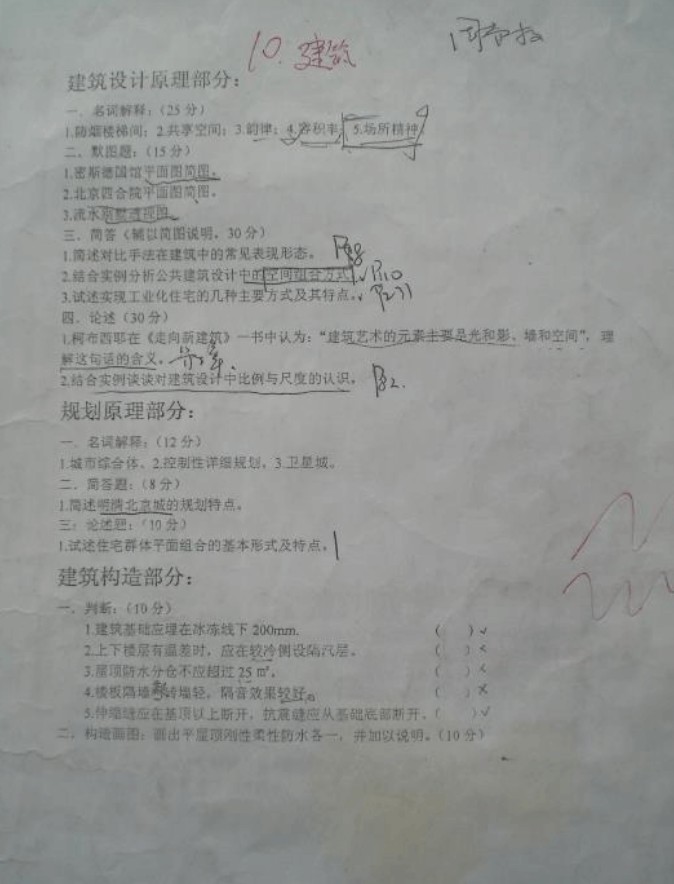 10. 建筑
建筑设计原理部分：
一．名词解释：（25分）
1.防烟楼梯间；2.共享空间；3.韵律；4.容积率；5.场所精神
二．默图题：（15分）
1.密斯德国馆平面图简图。
2.北京四合院平面图简图。
3.流水别墅透视图。
三．简答（辅以简图说明，30分）
1.简述对比手法在建筑中的常见表现形态。
2.结合实例分析公共建筑设计中的空间组合方式。P110
3.试述实现工业化住宅的几种主要方式及其特点。P271
四．论述（30分）
1.柯布西耶在《走向新建筑》一书中认为：“建筑艺术的元素主要是光和影，墙和空间”，理
解这句话的含义。
2.结合实例谈谈对建筑设计中比例与尺度的认识。P82.
规划原理部分：
一．名词解释：（12分）
1.城市综合体、2.控制性详细规划，3.卫星城。
二．简答题：（8分）
1.简述明清北京城的规划特点。
三：论述题：（10分）
1.试述住宅群体平面组合的基本形式及特点。
建筑构造部分：
一．判断：（10分）
1.建筑基础应埋在冰冻线下200mm.（ ）✓
2.上下楼层有温差时，应在较冷侧设隔汽层。（ ）×
3.屋顶防水分仓不应超过25㎡。（ ）×
4.楼板隔墙 砖墙轻，隔音效果较好。（ ）×
5.伸缩缝应在基顶以上断开，抗震缝应从基础底部断开。（ ）✓
二．构造画图：画出平屋顶刚性柔性防水各一，并加以说明。（10分）